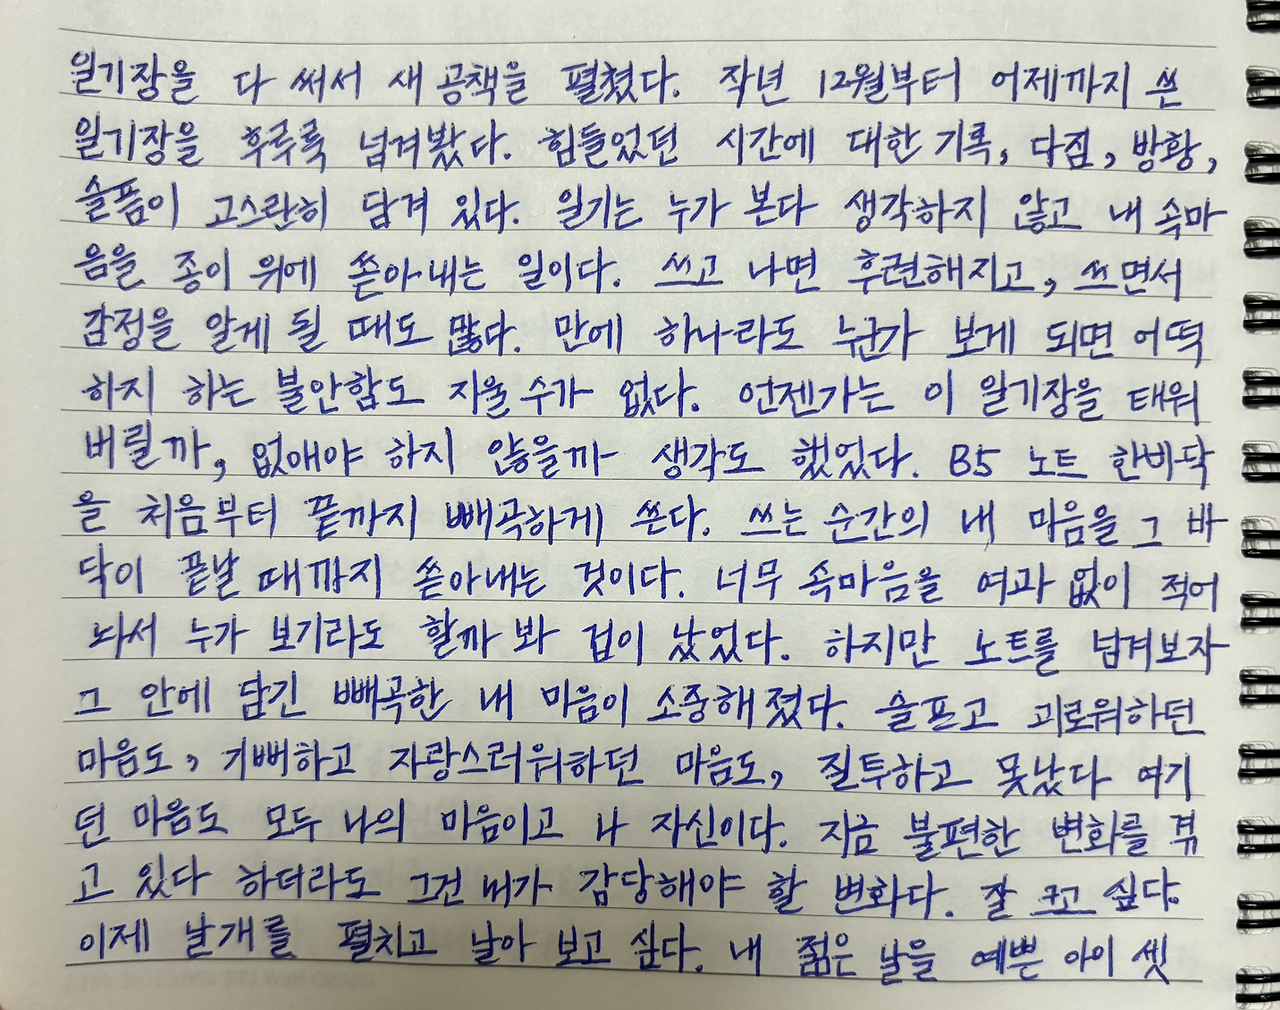 일기장을 다 써서 새 공책을 펼쳤다. 작년 12월부터 어제까지 쓴
일기장을 후루룩 넘겨봤다. 힘들었던 시간에 대한 기록, 다짐, 방황,
슬픔이 고스란히 담겨 있다. 일기는 누가 본다 생각하지 않고 내 속마
음을 종이 위에 쏟아내는 일이다. 쓰고 나면 후련해지고, 쓰면서
감정을 알게 될 때도 많다. 만에 하나라도 누군가 보게 되면 어떡
하지 하는 불안함도 지울 수가 없다. 언젠가는 이 일기장을 태워
버릴까, 없애야 하지 않을까 생각도 했었다. B5 노트 한바닥
을 처음부터 끝까지 빼곡하게 쓴다. 쓰는 순간의 내 마음을 그 바
닥이 끝날 때까지 쏟아내는 것이다. 너무 속마음을 여과 없이 적어
놔서 누가 보기라도 할까 봐 겁이 났었다. 하지만 노트를 넘겨보자
그 안에 담긴 빼곡한 내 마음이 소중해졌다. 슬프고 괴로워하던
마음도, 기뻐하고 자랑스러워하던 마음도, 질투하고 못났다 여기
던 마음도 모두 나의 마음이고 나 자신이다. 지금 불편한 변화를 겪
고 있다 하더라도 그건 내가 감당해야 할 변화다. 잘 크고 싶다.
이제 날개를 펼치고 날아 보고 싶다. 내 젊은 날을 예쁜 아이 셋